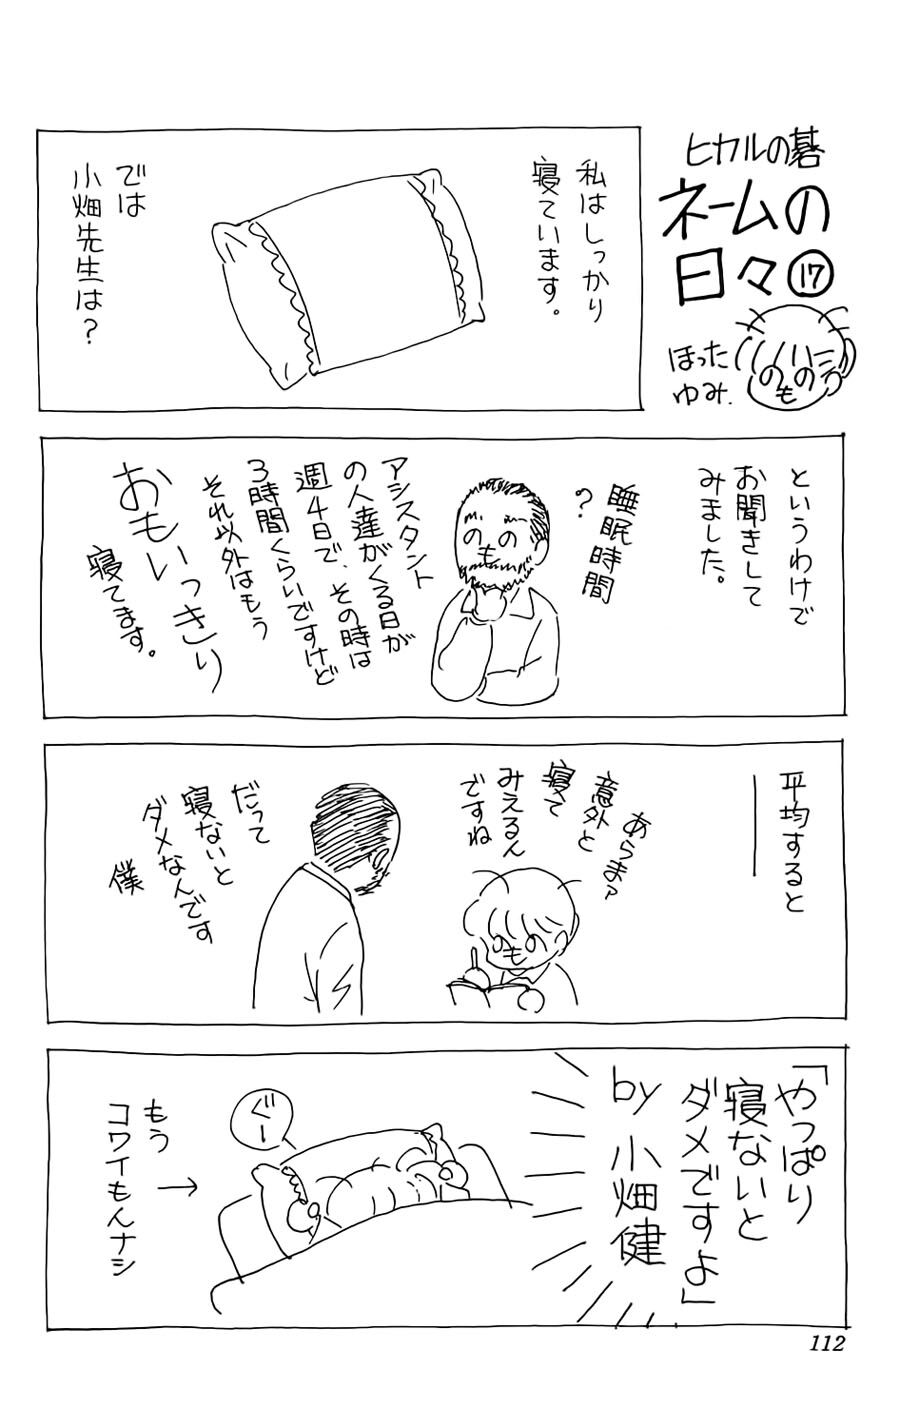 ヒカルの碁
ネームの
日々⑰
ほった
ゆみ.
私はしっかり
寝ています。
では
小畑先生は？
というわけで
お聞きして
みました。
睡眠時間
？
アシスタント
の人達がくる日が
週４日で、その時は
３時間くらいですけど
それ以外はもう
おもいっきり
寝てます。
平均すると
――
あらまァ
意外と
寝て
みえるん
ですね
だって
寝ないと
ダメなんです
僕
「やっぱり
寝ないと
ダメですよ」
by 小畑健
ぐー
もう
コワイもんナシ
→
112